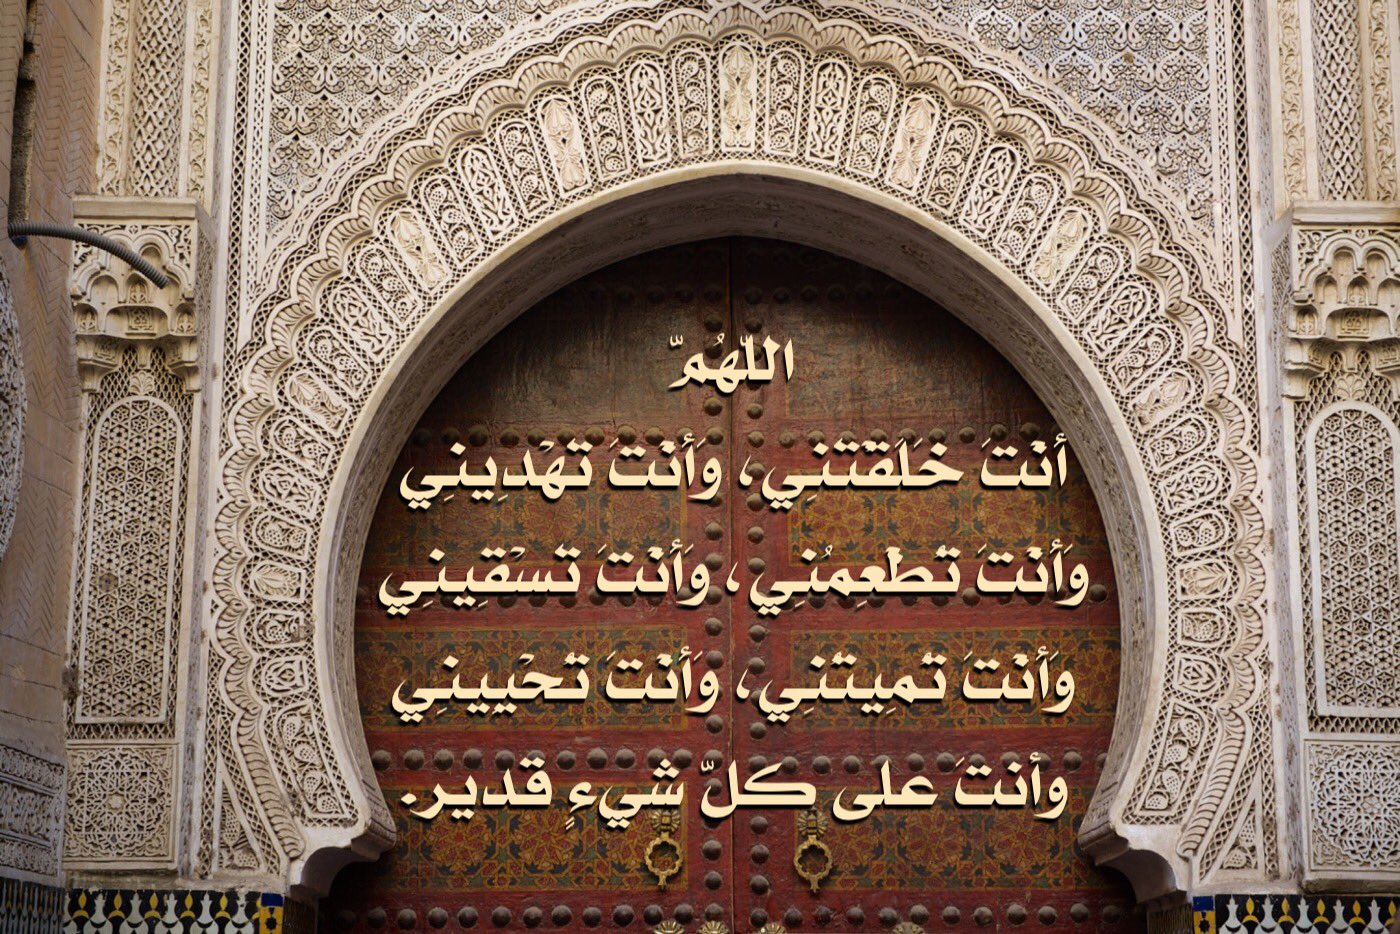 اللّهُمّ
أنْتَ خَلَقْتَنِي، وَأنْتَ تَهْدِينِي
وَأنْتَ تُطْعِمُنِي، وَأنْتَ تَسْقِينِي
وَأنْتَ تُمِيتُنِي، وَأنْتَ تُحْيِينِي
وأنتَ على كلّ شيءٍ قدير.